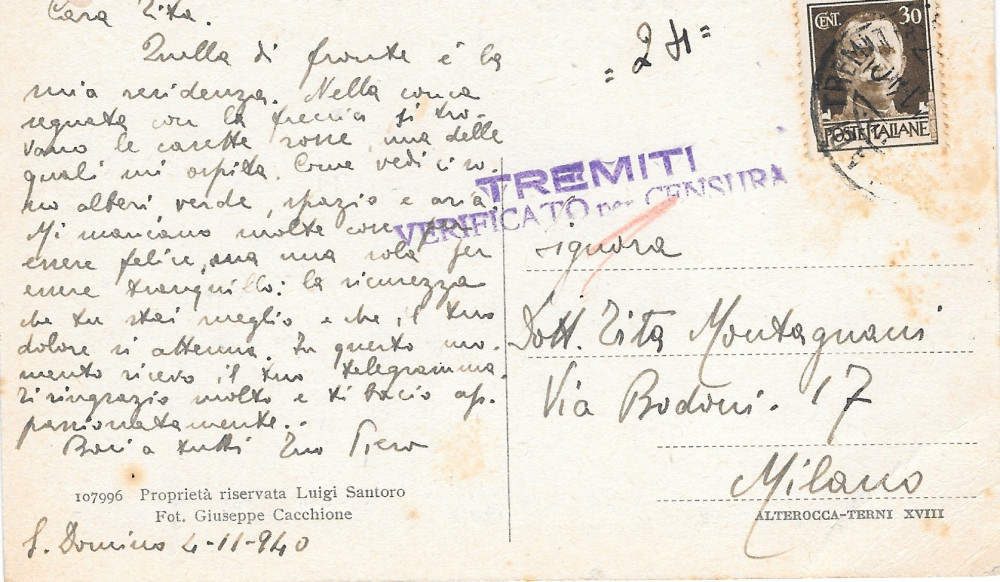 Cara Zita.
Quella di fronte è la
mia residenza. Nella conca
segnata con la freccia si tro-
vano le casette rosse, una delle
quali mi ospita. Come vedi ci so-
no alberi, verde, spazio e aria.
Mi mancano molte cose per
essere felice, ma una sola per
essere tranquillo: la sicurezza
che tu stai meglio e che il tuo
dolore si attenua. In questo mo-
mento ricevo il tuo telegramma.
Ti ringrazio molto e ti bacio ap-
passionatamente..
Baci a tutti Tuo Piero
107996 Proprietà riservata Luigi Santoro
Fot. Giuseppe Cacchione
S. Domino 4-11-940
CENT. 30
POSTE ITALIANE
TREMITI
TREMITI
VERIFICATO per CENSURA
Signora
Dott. Zita Montagnani
Via Bodoni. 17
Milano
ALTEROCCA-TERNI XVIII